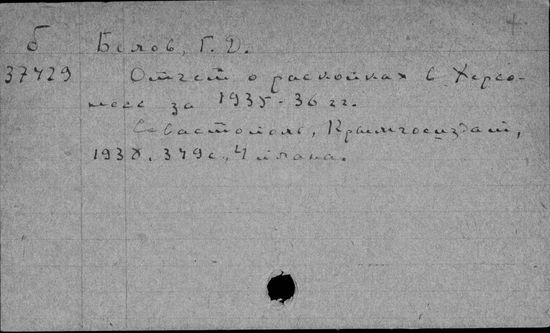 б Белов, Г. Д.
37429 Отчет о раскопках в Херсо-
несе за 1935-36 гг.
Севастополь, Крымгосиздат,
1938. 349 с., 4 плана.